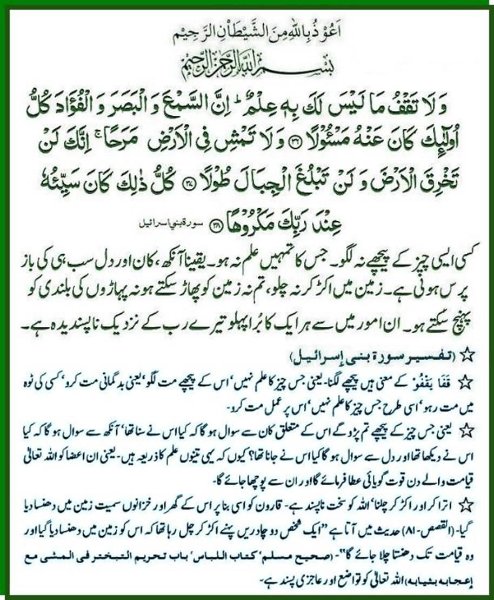 اَعُوْذُ بِاللّٰهِ مِنَ الشَّيْطٰنِ الرَّجِيْمِ
بِسْمِ اللّٰهِ الرَّحْمٰنِ الرَّحِيْمِ
وَ لَا تَقْفُ مَا لَيْسَ لَكَ بِهٖ عِلْمٌ ؕ اِنَّ السَّمْعَ وَ الْبَصَرَ وَ الْفُؤَادَ كُلُّ
اُولٰٓئِكَ كَانَ عَنْهُ مَسْئُوْلًا ﴿۳۶﴾ وَ لَا تَمْشِ فِی الْاَرْضِ مَرَحًا ۚ اِنَّكَ لَنْ
تَخْرِقَ الْاَرْضَ وَ لَنْ تَبْلُغَ الْجِبَالَ طُوْلًا ﴿۳۷﴾ كُلُّ ذٰلِكَ كَانَ سَيِّئُهٗ
عِنْدَ رَبِّكَ مَكْرُوْهًا ﴿۳۸﴾ سورة بنی اسرائیل
کسی ایسی چیز کے پیچھے نہ لگو۔ جس کا تمہیں علم نہ ہو۔ یقینا آنکھ، کان اور دل سب ہی کی باز
پرس ہونی ہے۔ زمین میں اکڑ کر نہ چلو، تم نہ زمین کو پھاڑ سکتے ہو نہ پہاڑوں کی بلندی کو
پہنچ سکتے ہو۔ ان امور میں سے ہر ایک کا بُرا پہلو تیرے رب کے نزدیک ناپسندیدہ ہے۔
☆ (تفسیر سورة بنی إسرائیل)
☆ قَفَا يَقْفُوْ کے معنی ہیں پیچھے لگنا۔ یعنی جس چیز کا علم نہیں‘ اس کے پیچھے مت لگو‘ یعنی بدگمانی مت کرو‘ کسی کی ٹوہ
میں مت رہو‘ اسی طرح جس چیز کا علم نہیں‘ اس پر عمل مت کرو۔
☆ یعنی جس چیز کے پیچھے تم پڑو گے اس کے متعلق کان سے سوال ہو گا کہ کیا اس نے سنا تھا‘ آنکھ سے سوال ہو گا کہ کیا
اس نے دیکھا تھا اور دل سے سوال ہو گا کیا اس نے جانا تھا؟ کیوں کہ یہی تینوں علم کا ذریعہ ہیں۔ یعنی ان اعضا کو اللہ تعالیٰ
قیامت والے دن قوت گویائی عطا فرمائے گا اور ان سے پوچھا جائے گا۔
☆ اترا کر اور اکڑ کر چلنا‘ اللہ کو سخت ناپسند ہے۔ قارون کو اسی بنا پر اس کے گھر اور خزانوں سمیت زمین میں دھنسا دیا
گیا۔ (القصص۔ ۸۱) حدیث میں آتا ہے ”ایک شخص دو چادریں پہنے اکڑ کر چل رہا تھا کہ اس کو زمین میں دھنسا دیا گیا اور
وہ قیامت تک دھنستا چلا جائے گا“۔ (صحیح مسلم‘ کتاب اللباس‘ باب تحریم التبختر فی المشی مع
إعجابه بثیابه) اللہ تعالیٰ کو تواضع اور عاجزی پسند ہے۔